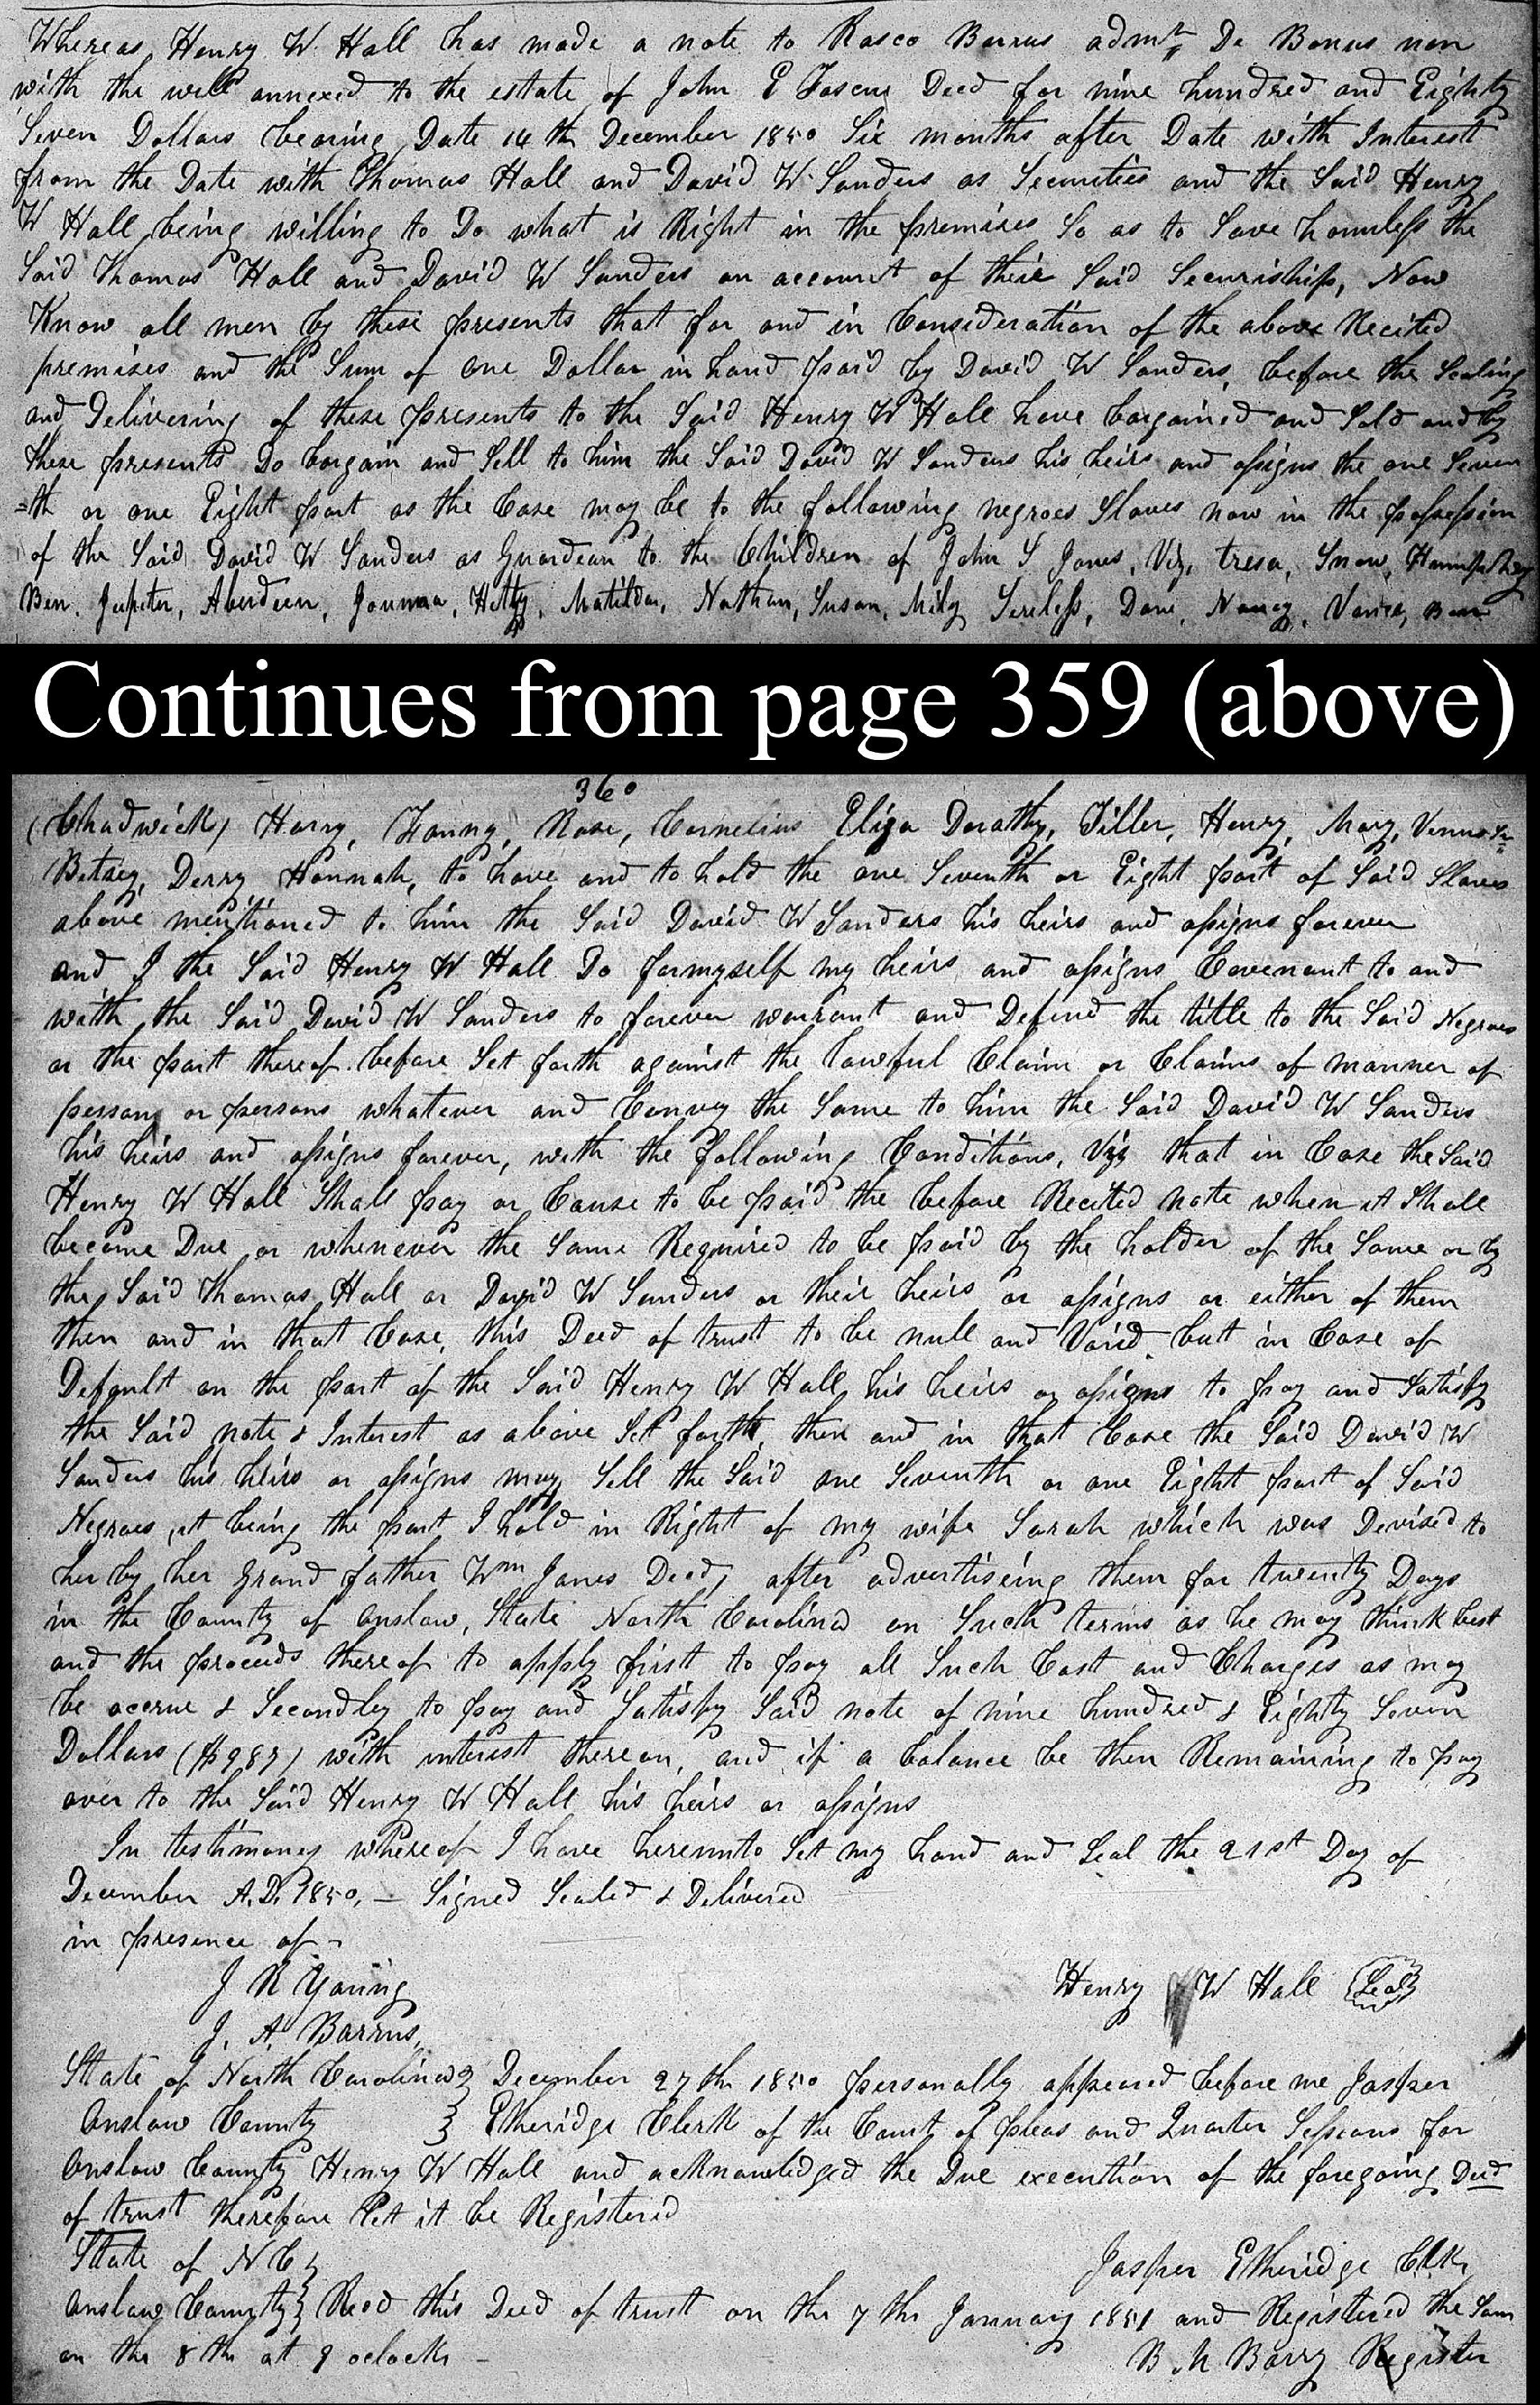 Whereas Henry W. Hall has made a note to Rasco Barrus admr De Bonus non
with the will annexed to the estate of John E Foscue Decd for nine hundred and Eighty
Seven Dollars bearing Date 14th December 1850 Six months after Date with Interest
from the Date with Thomas Hall and David W. Sanders as Securities and the Said Henry
W Hall being willing to Do what is Right in the premises So as to Save harmless the
Said Thomas Hall and David W Sanders on account of their Said Securiship, Now
Know all men by these presents that for and in Consideration of the above Recited
premises and the Sum of one Dollar in hand paid by David W Sanders, before the Sealing
and Delivering of these presents to the Said Henry W Hall have bargained and Sold and by
these presents Do bargain and Sell to him the Said David W Sanders his heirs and assigns the one Seven
=th or one Eight part as the Case may be to the following negroes Slaves now in the possession
of the Said David W Sanders as Guardean to the Children of John S Jones, Viz, tresa, Snow, Humphrey
Ben, Jupiter, Aberdeen, Hetty, Matilda, Nathan, Susan, Mily Dave, Nancy, Ben
Continues from page 359 (above)
360
(Chadwick) Harry, Fanny, Rose, Cornelius Eliza Dorathy, Tiller, Henry, Mary, Venus Sr
Betsey, Derry Hannah, to have and to hold the one Seventh or Eight part of Said Slaves
above mentioned to him the Said David W Sanders his heirs and assigns forever
and I the Said Henry W Hall Do formyself my heirs and assigns Covenant to and
with the Said David W Sanders to forever warrant and Defend the title to the Said Negroes
or the part thereof before Set forth against the lawful Claim or Claims of manner of
person or persons whatever and Convey the Same to him the Said David W Sanders
his heirs and assigns forever, with the following Conditions, Viz that in Case the Said
Henry W Hall Shall pay or Cause to be paid the before Recited note when it Shall
become Due or whenever the Same Required to be paid by the holder of the Same or by
the Said Thomas Hall or David W Sanders or their heirs or assigns or either of them
then and in that Case, this Deed of trust to be null and Void but in Case of
Default on the part of the Said Henry W Hall his heirs or assigns to pay and Satisfy
the Said note & Interest as above Set forth, then and in that Case the Said David W
Sanders his heirs or assigns may Sell the Said one Seventh or one Eight part of Said
Negroes, it being the part I hold in Right of my wife Sarah which was Devised to
her by her Grand father Wm Jones Decd, after advertiseing them for twenty Days
in the County of Onslow, State North Carolina on Such terms as he may think best
and the proceeds thereof to apply first to pay all Such Cost and Charges as may
be accrue & Secondly to pay and Satisfy Said note of nine hundred & Eighty Seven
Dollars ($987) with interest thereon, and if a balance be then Remaining to pay
over to the Said Henry W Hall his heirs or assigns
In testimony whereof I have hereunto Set my hand and Seal the 21st Day of
December A.D. 1850, — Signed Sealed & Delivered
in presence of
J R Young
Henry W Hall Seal
J. A. Barrus,
State of North Carolina December 27th 1850 personally appeared before me Jasper
Onslow County Etheridge Clerk of the Court of pleas and Quarter Sessions for
Onslow County Henry W Hall and acknowledged the Due execution of the foregoing Deed
of trust therefore Let it be Registered
State of N C
Jasper Etheridge Clk
Onslow County Recd this Deed of trust on the 7th January 1851 and Registered the Same
on the 8th at 9 oclock —
B M Barry Register